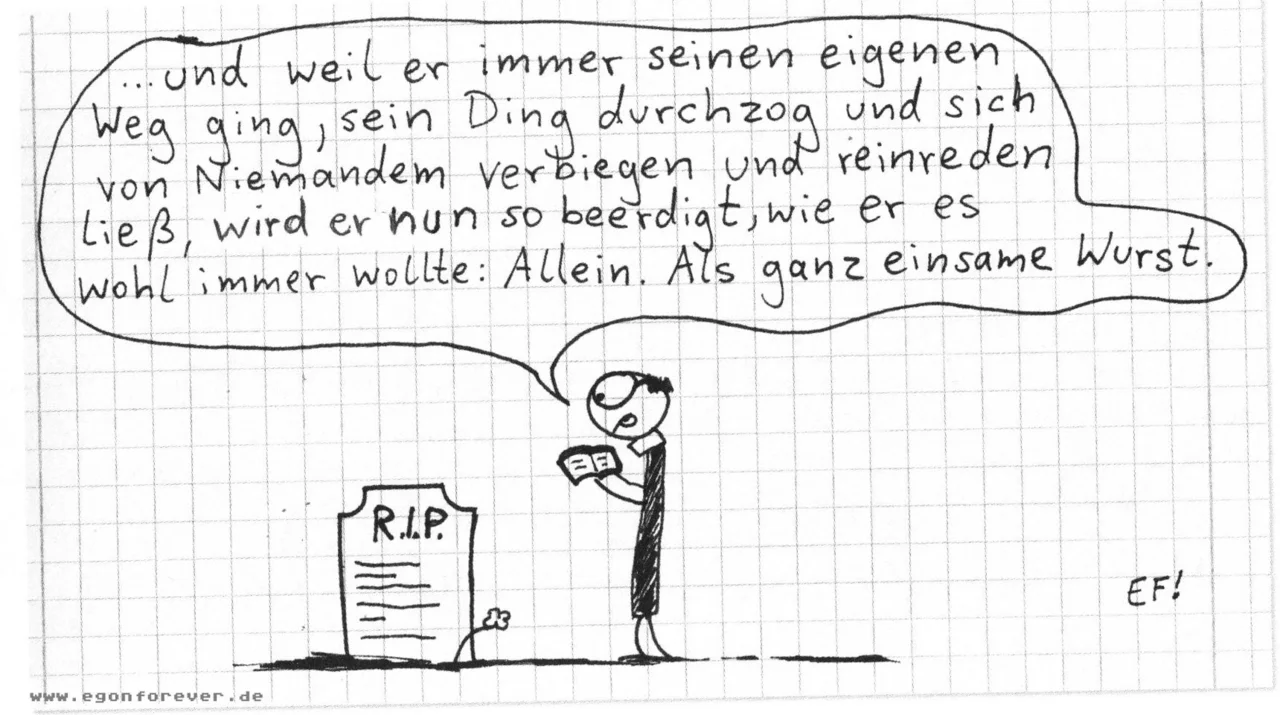 ...und weil er immer seinen eigenen
Weg ging, sein Ding durchzog und sich
von Niemandem verbiegen und reinreden
ließ, wird er nun so beerdigt, wie er es
wohl immer wollte: Allein. Als ganz einsame Wurst.
R.I.P.
EF!
www.egonforever.de